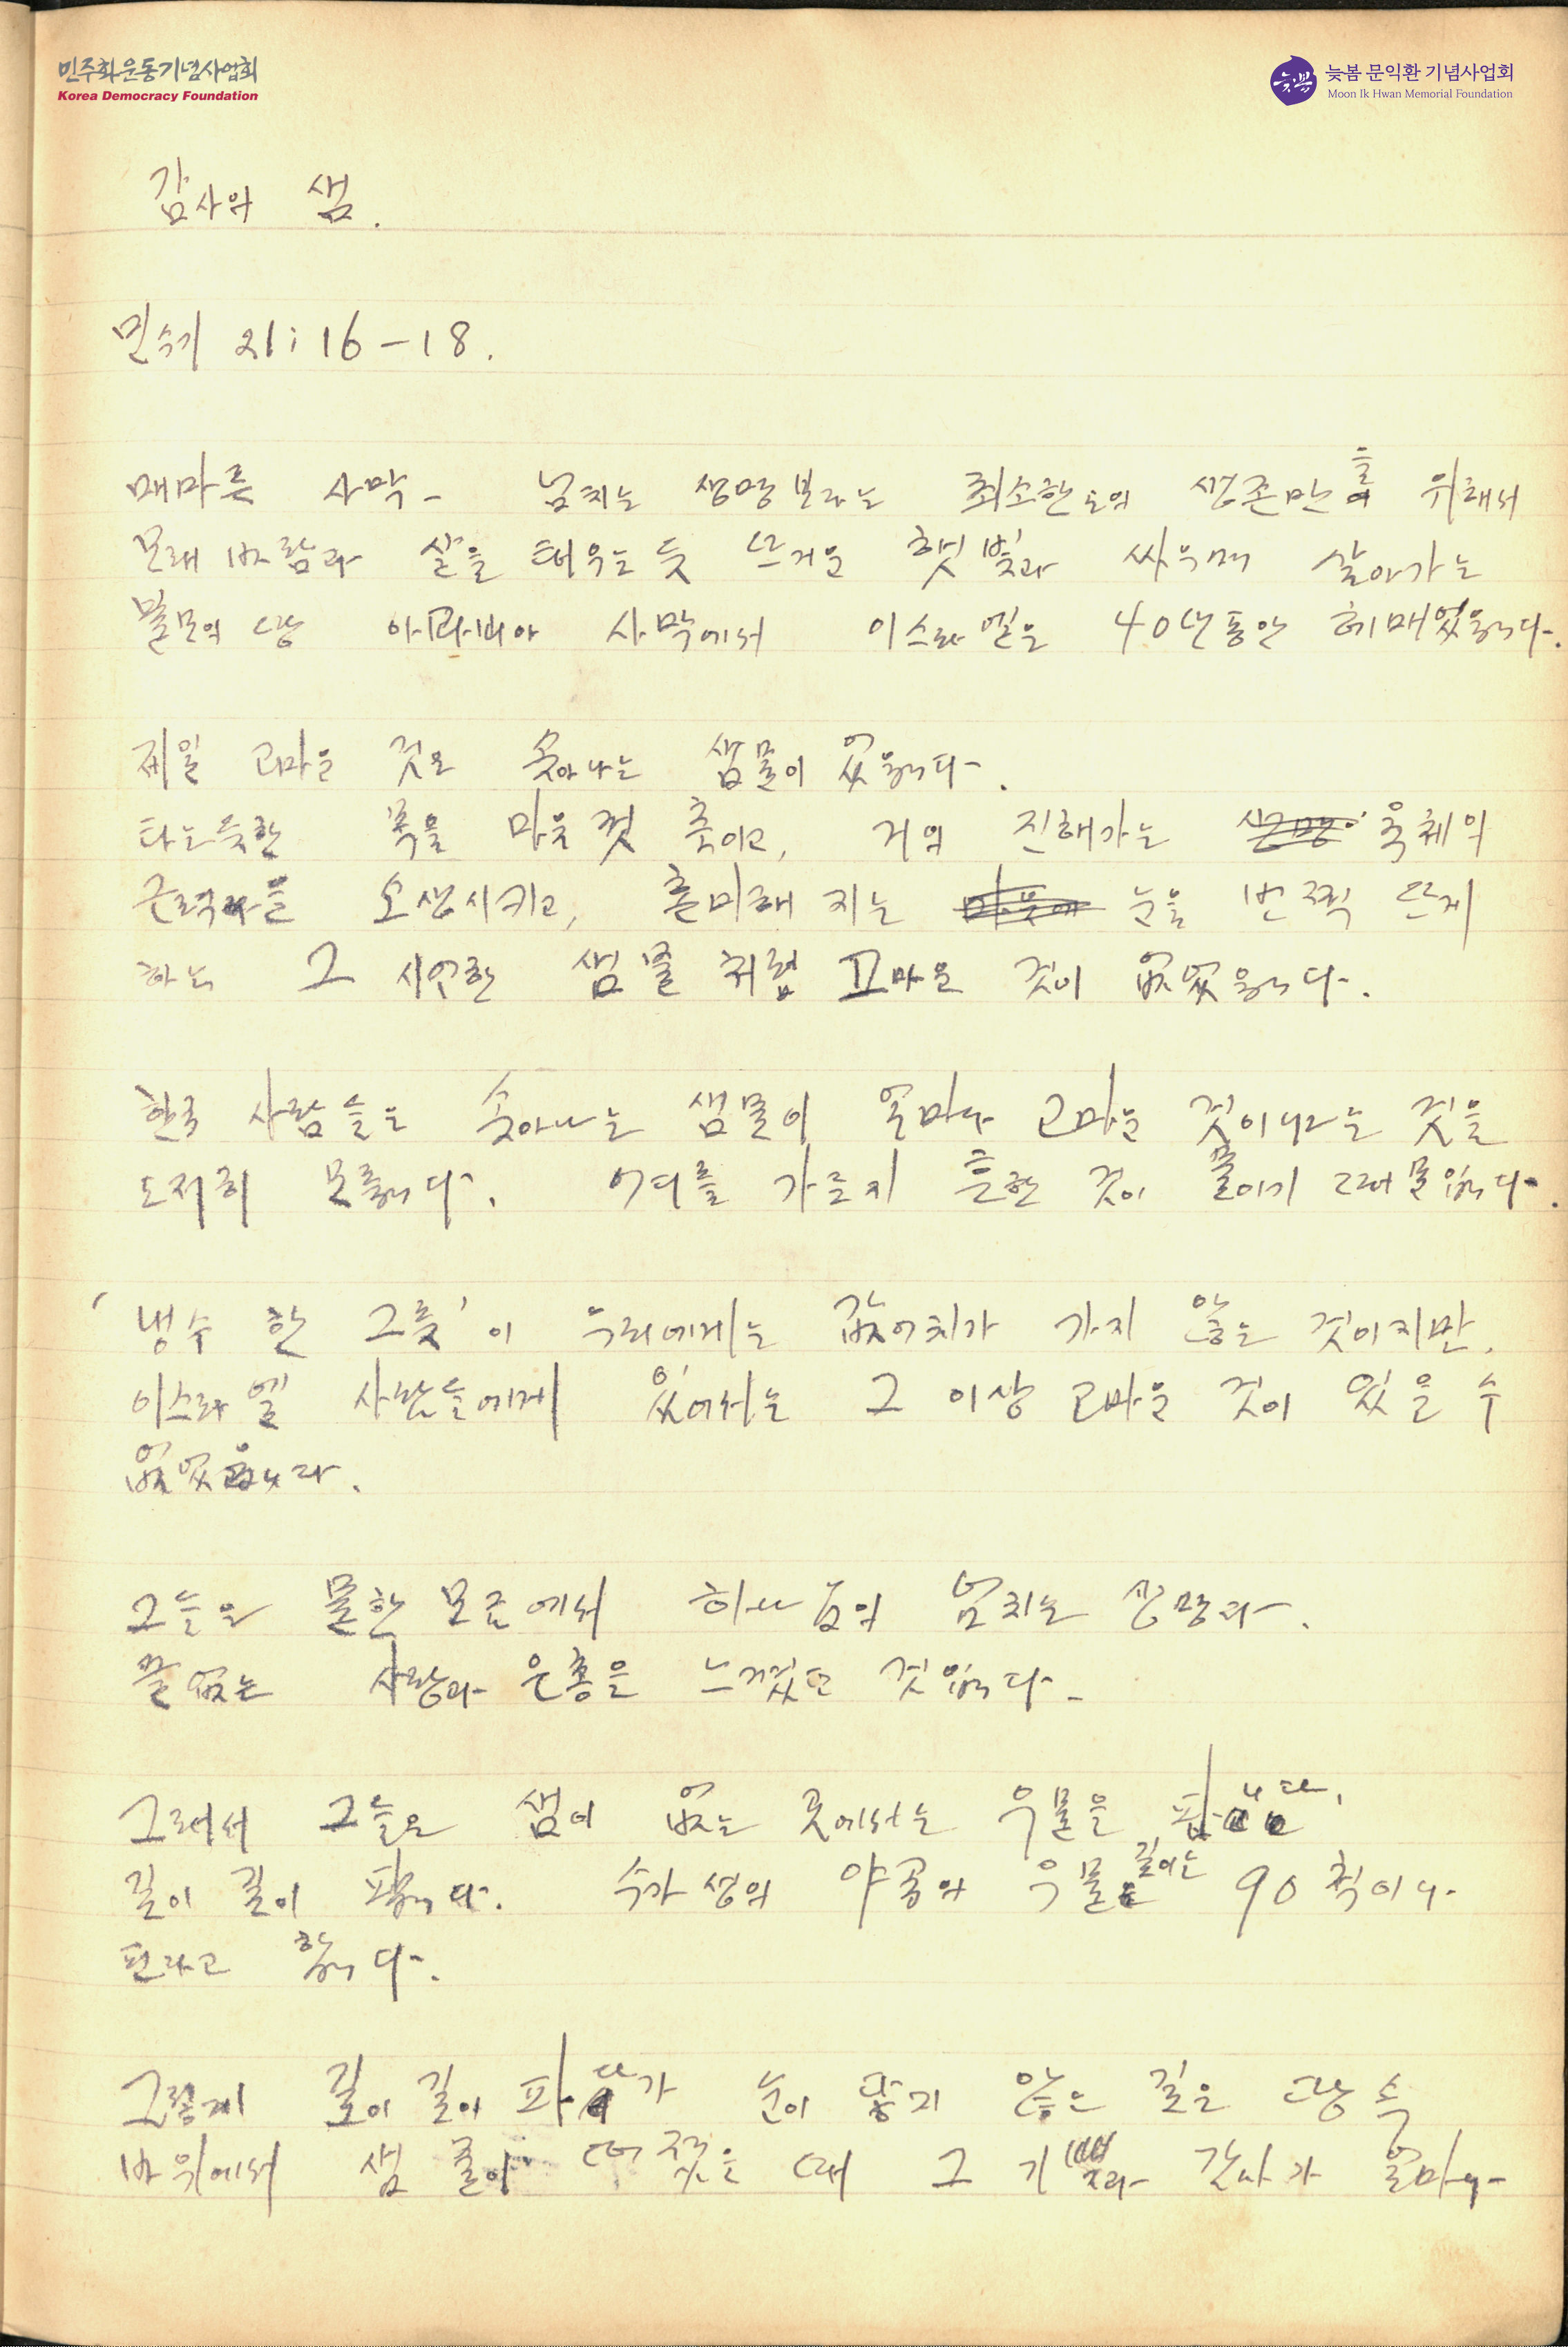 민주화운동기념사업회
Korea Democracy Foundation
늦봄
늦봄 문익환 기념사업회
Moon Ik Hwan Memorial Foundation
감사의 샘.
민수기 21:16-18.
매마른 사막- 넘치는 생명보다는 최소한도의 생존만을 위해서
모래 바람과 살을 태우는 듯 뜨거운 햇볓과 싸우며 살아가는
불모의 땅 아라비아 사막에서 이스라엘은 40년동안 헤매었읍니다.
제일 고마운 것은 솟아나는 샘물이었읍니다.
타는듯한 목을 마음껏 축이고, 거의 진해가는 육체의
근력을 소생시키고, 혼미해 지는 눈을 번쩍 뜨게
하는 그 시원한 샘물 처럼 고마운 것이 없었읍니다.
한국 사람들은 솟아나는 샘물이 얼마나 고마운 것이냐는 것을
도저히 모릅니다. 어디를 가든지 흔한 것이 물이기 때문입니다.
'냉수 한 그릇'이 우리에게는 값어치가 가지 않는 것이지만,
이스라엘 사람들에게 있어서는 그 이상 고마운 것이 있을 수
없었읍니다.
그들은 물한 모금에서 하나님의 넘치는 생명과,
끝없는 사랑과 은총을 느꼈던 것입니다.
그래서 그들은 샘이 없는 곳에서는 우물을 팝니다.
깊이 깊이 팝니다. 수가성의 야곱의 우물 깊이는 90척이나
된다고 합니다.
그렇게 깊이 깊이 파다가 눈이 닿지 않는 깊은 땅 속
바위에서 샘 줄이 터졌을 때 그 기쁨과 감사가 얼마나